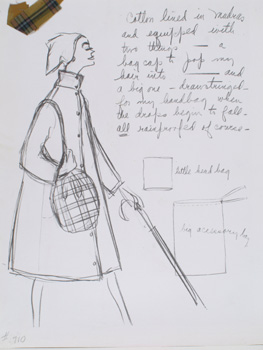 Cotton lined in madras
and equipped with
two things — a
bag cap to pop my
hair into — and
a big one - drawstringed -
for my handbag when
the drops begin to fall -
all rainproofed of course -
little head bag
big accessory bag
# 910